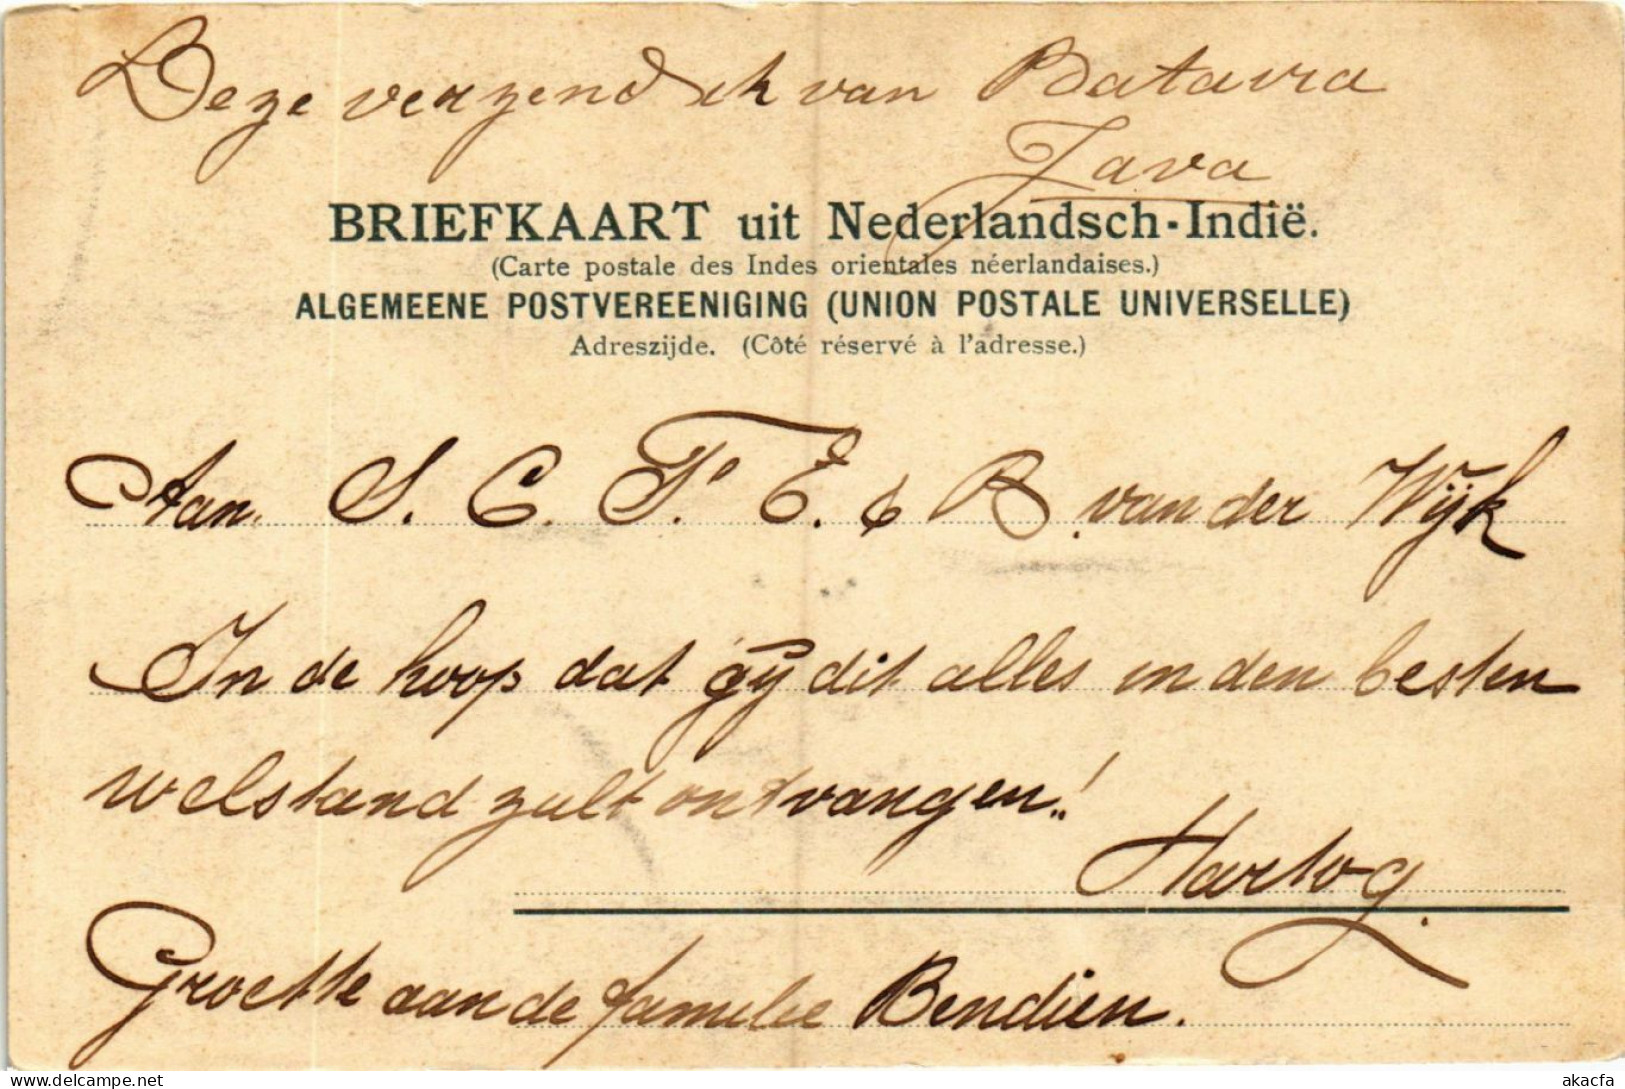 Deze verzend ik van Batavia
Java
BRIEFKAART uit Nederlandsch-Indië.
(Carte postale des Indes orientales néerlandaises.)
ALGEMEENE POSTVEREENIGING (UNION POSTALE UNIVERSELLE)
Adreszijde. (Côté réservé à l'adresse.)
Aan S. C. F. E. & B. van der Wijk
In de hoop dat gij dit alles in den besten
welstand zult ontvangen!
Hartog.
Groette aan de familie Bendien.
akacfa